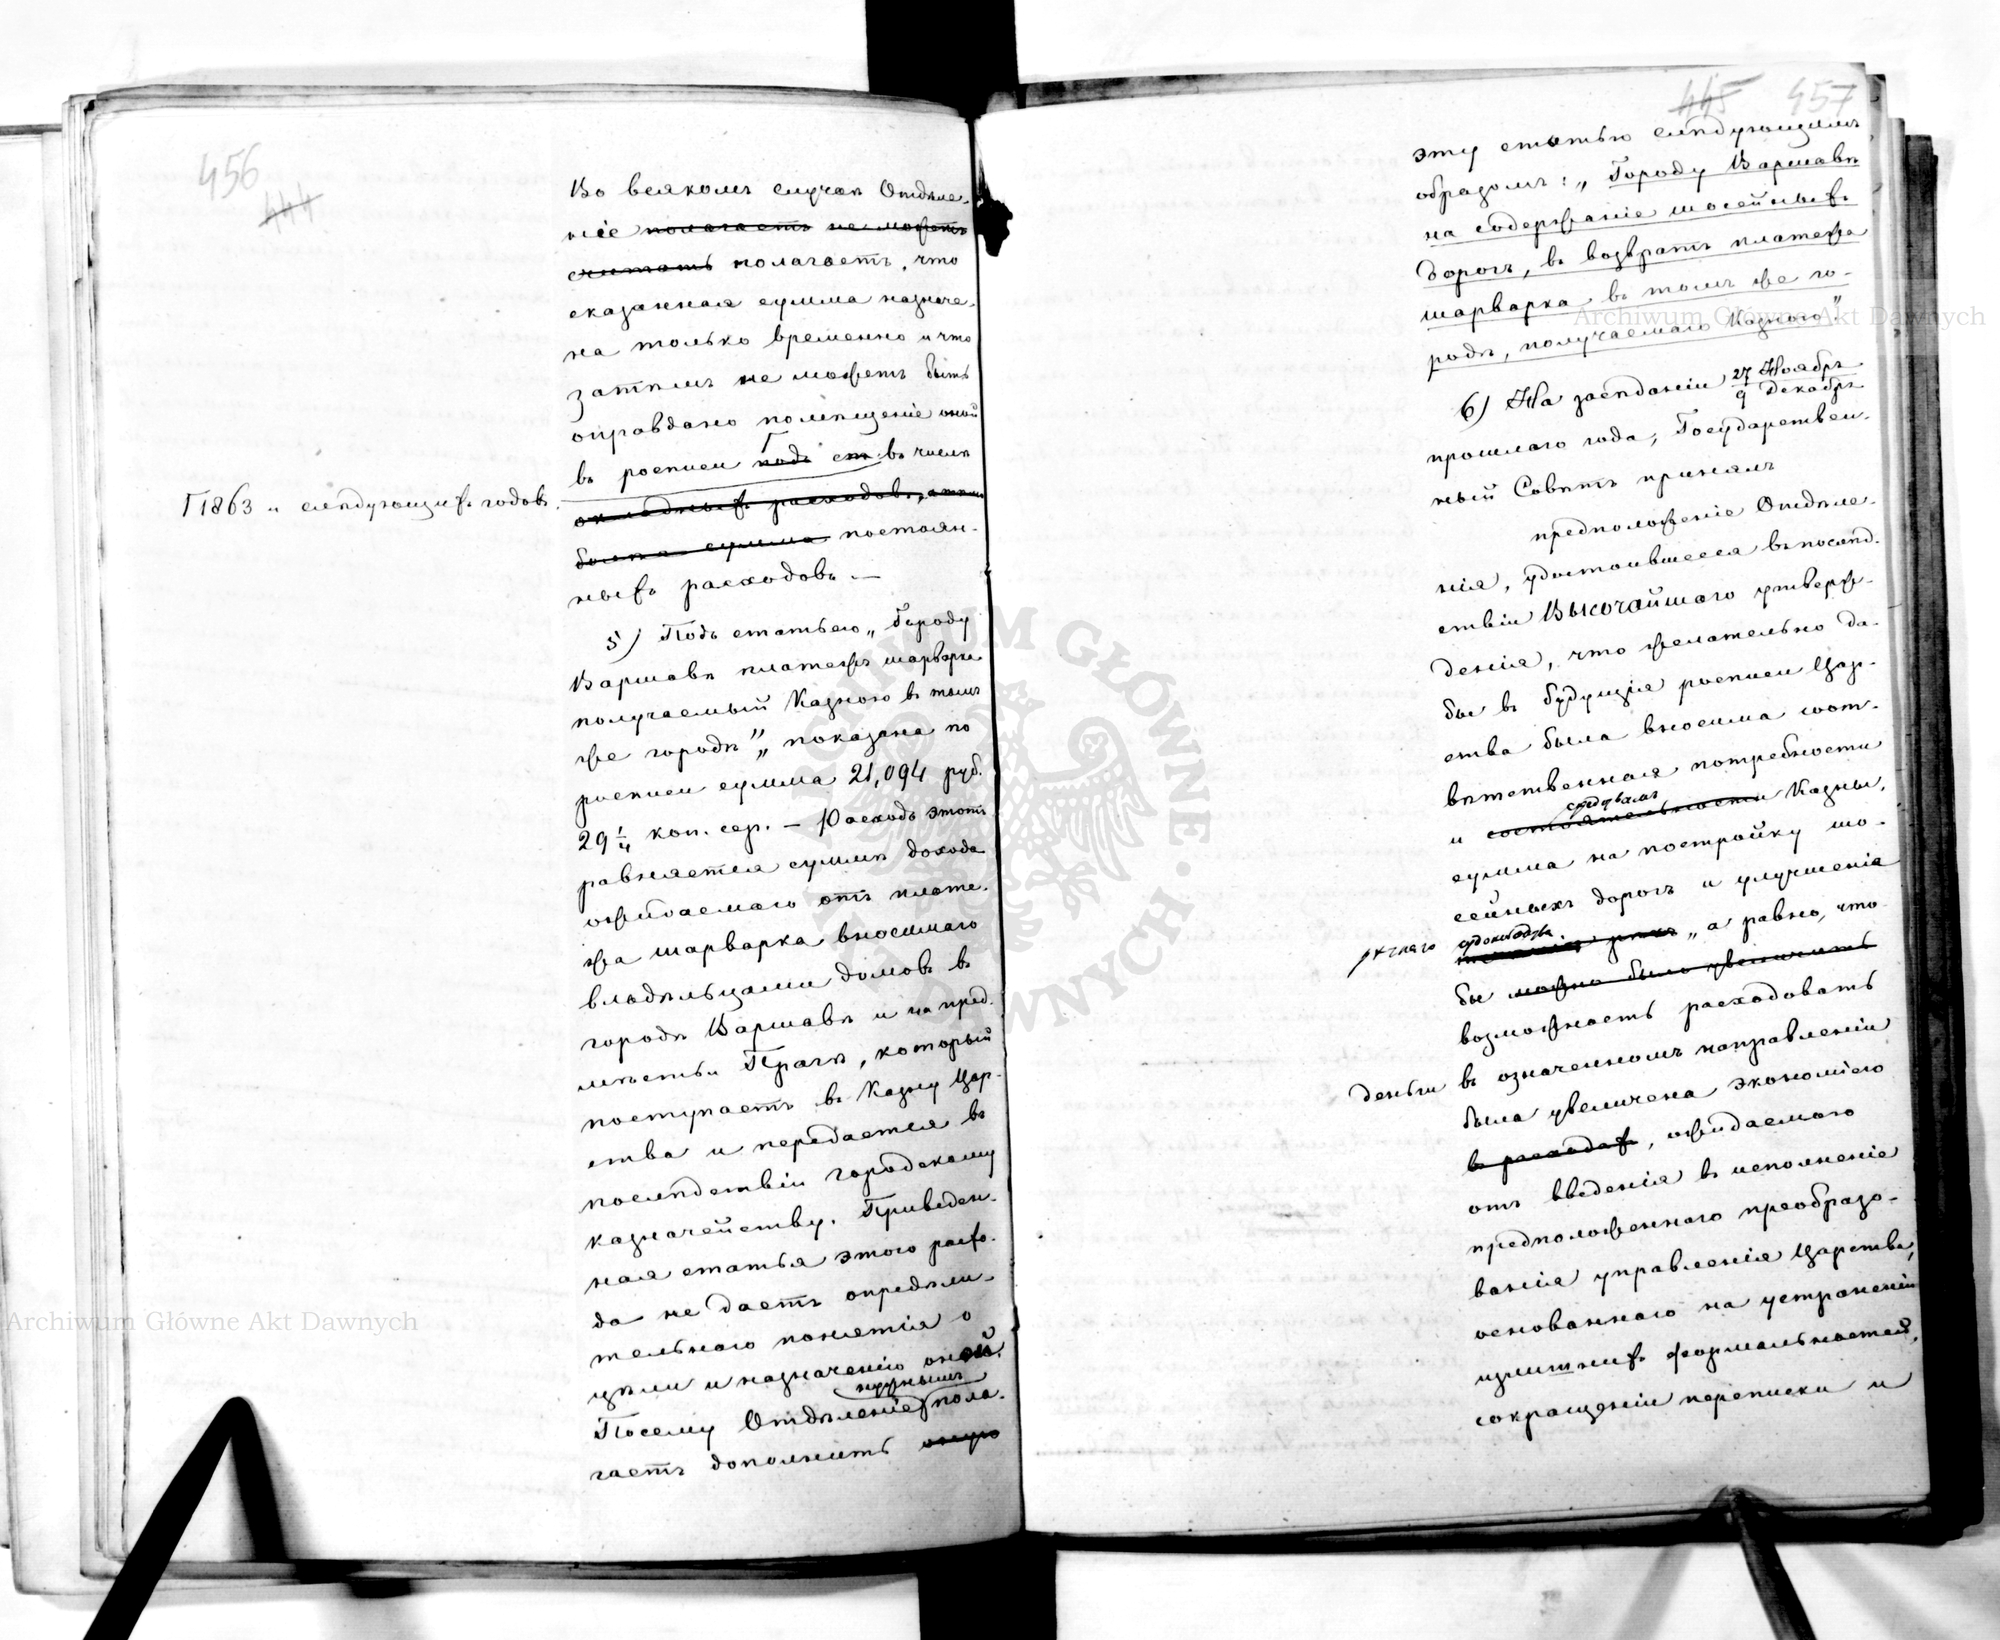 456
444
Во всякомъ случаѣ Отдѣле-
ніе полагаетъ не можетъ
считать полагаетъ, что
сказанная сумма назначе-
на только временно и что
затѣмъ не можетъ быть
оправдано помѣщеніе оной
въ росписи подъ ст. въ числѣ
Г 1863 и слѣдующихъ годовъ
окладныхъ расходовъ,
сумма постоян-
ныхъ расходовъ. —
5) Подъ статьею „Городу
Варшавѣ платежъ шарварка
получаемый Казною въ томъ
же городѣ" показана по
росписи сумма 21,094 руб.
29 1/4 коп. сер. — Расходъ этотъ
равняется суммѣ дохода
ожидаемаго отъ плате-
жа шарварка вносимаго
владѣльцами домовъ въ
городѣ Варшавѣ и на пред-
мѣстьи Прагѣ, который
поступаетъ въ Казну Цар-
ства и передается въ
послѣдствіи городскому
казначейству. Приведен-
ная статья этого расхо-
да не даетъ опредѣли-
тельнаго понятія о
цѣли и назначенію оной.
нужнымъ
Посему Отдѣленіе пола-
гаетъ дополнить оную
445 457
эту статью слѣдующимъ
образомъ: „Городу Варшавѣ
на содержаніе шосейныхъ
дорогъ, въ возвратъ платежа
шарварка въ томъ же го-
родѣ, получаемаго Казною."
6) На засѣданіи 27 Ноября
9 Декабря
прошлаго года, Государствен-
ный Совѣтъ принялъ
предположеніе Отдѣле-
нія, удостоившееся въ послѣд-
ствіи Высочайшаго утверж-
денія, что желательно да-
бы въ будущія росписи Цар-
ства была вносима соот-
вѣтственная потребности
средствамъ
и состоятельности Казны,
сумма на постройку шо-
сейныхъ дорогъ и улучшенія
рѣчнаго судоходства
„а равно, что
бы можно было увеличить
возможность расходовать
деньги въ означенномъ направленіи
была увеличена экономіею
въ расходахъ, ожидаемаго
отъ введенія въ исполненіе
предположеннаго преобразо-
ванія управленія Царства,
основаннаго на устраненіи
излишнихъ формальностей,
сокращеніи переписки и
Archiwum Główne Akt Dawnych
Archiwum Główne Akt Dawnych
ARCHIWUM GŁÓWNE · AKT DAWNYCH ·